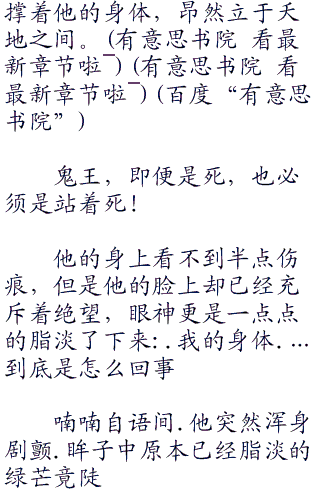 撑着他的身体，昂然立于天
地之间。(有意思书院 看最
新章节啦¯)(有意思书院 看
最新章节啦¯)(百度“有意思
书院”)
鬼王，即便是死，也必
须是站着死！
他的身上看不到半点伤
痕，但是他的脸上却已经充
斥着绝望，眼神更是一点点
的脂淡了下来:.我的身体....
到底是怎么回事
喃喃自语间.他突然浑身
剧颤.眸子中原本已经脂淡的
绿芒竟陡